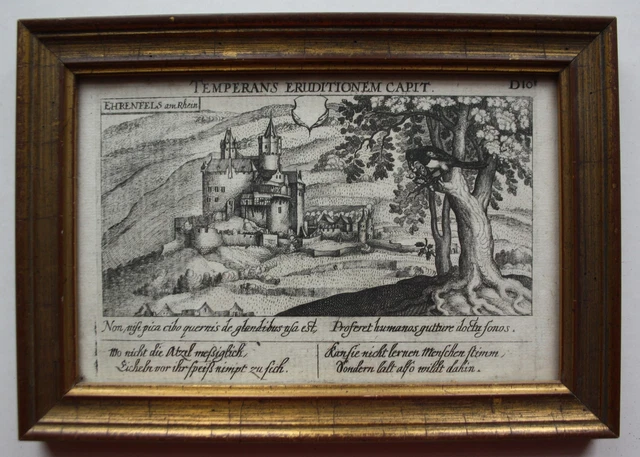 TEMPERANS ERUDITIONEM CAPIT.
EHRENFELS am Rhein
Non, nisi pica cibo quernis de glandibus usa est, Proferet humanos gutture docta sonos.
Wo nicht die Atzel messiglich,
Eicheln vor ihr speiß nimpt zu sich.
Kan sie nicht lernen Menschen stimm,
Sondern lalt also willdt dahin.